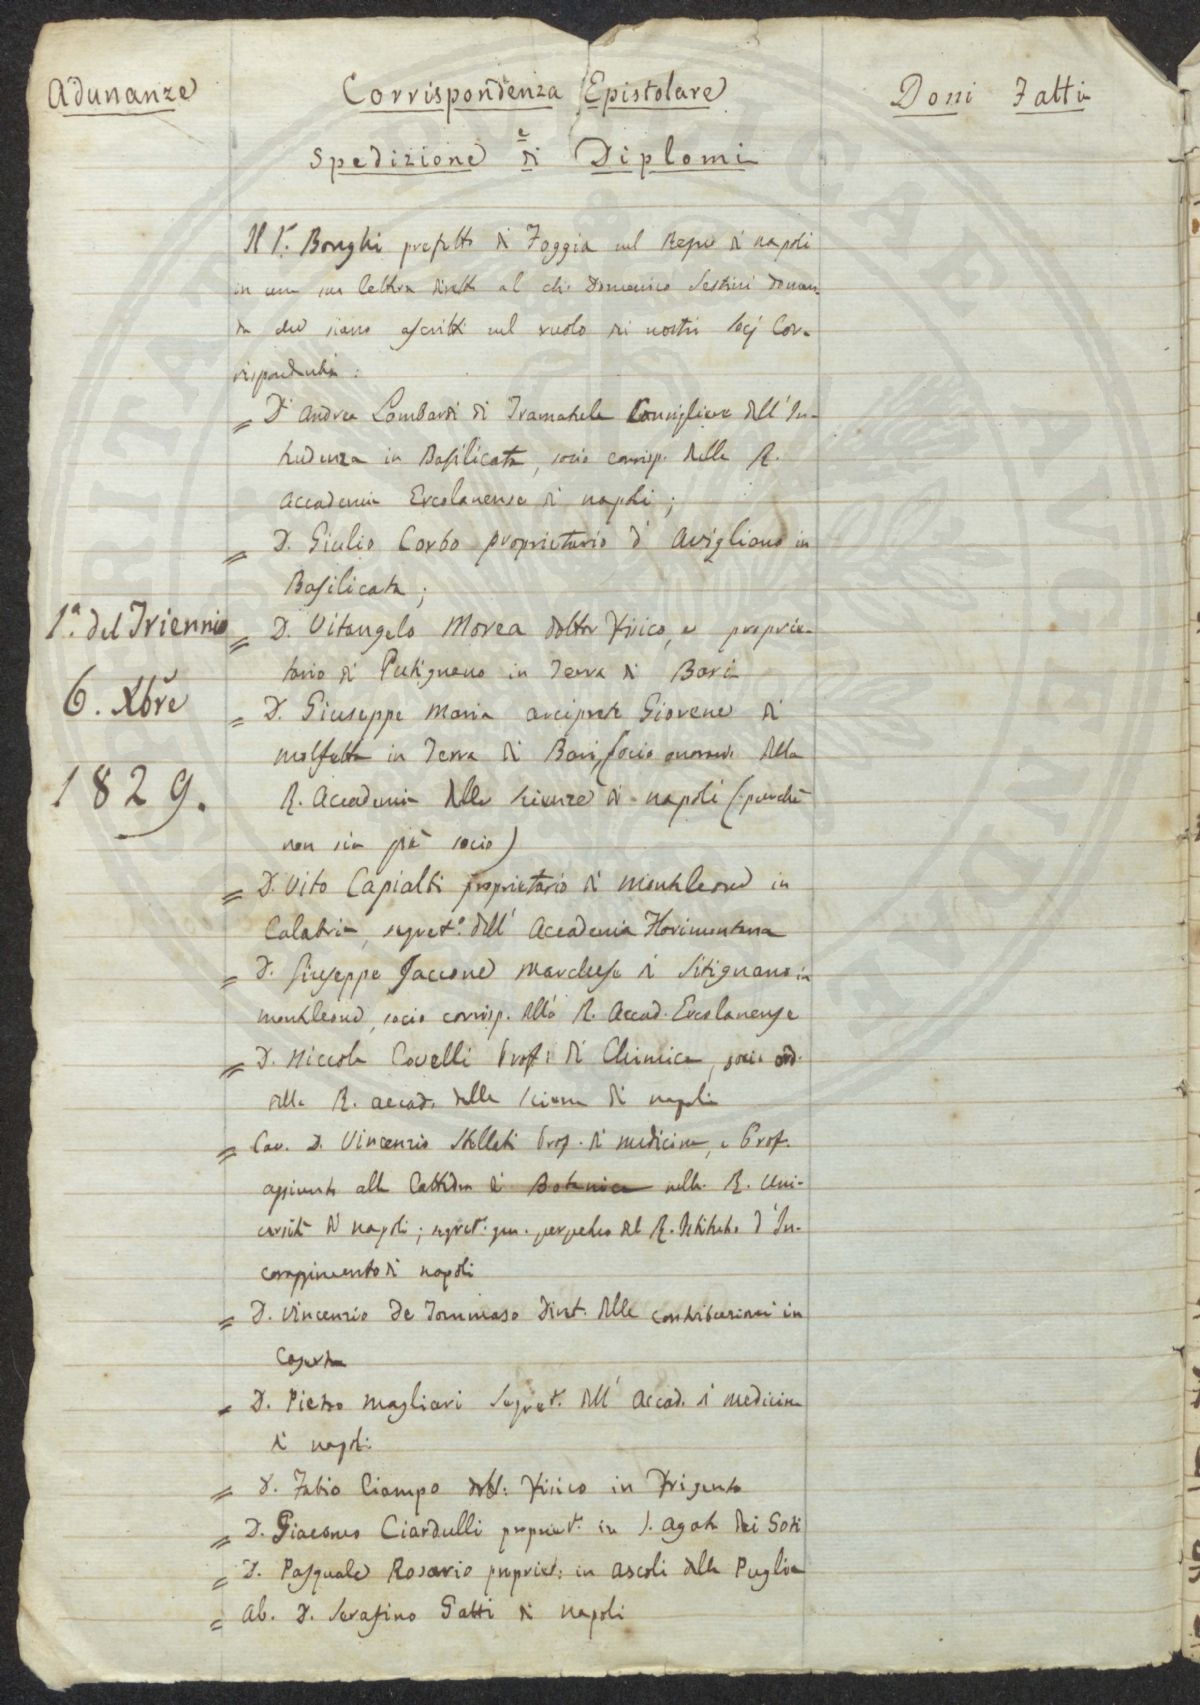 Adunanze
Corrispondenza Epistolare
e
Spedizione di Diplomi
Doni Fatti
1.ª del Triennio
6. Xbre
1829.
Il S.r Bonghi prefetto di Foggia nel Regno di Napoli
in una sua lettera diretta al ch. Domenico Sestini doman-
da che siano ascritti nel ruolo dei nostri Socj Cor-
rispondenti:
= D. Andrea Lombardi di Tramutola Consigliere dell'In-
tendenza in Basilicata, socio corrisp. della R.
Accademia Ercolanense di Napoli;
= D. Giulio Corbo proprietario d'Avigliano in
Basilicata;
= D. Vitangelo Morea dottor fisico, e proprie-
tario di Putignano in Terra di Bari
= D. Giuseppe Maria arciprete Giovene di
Molfetta in Terra di Bari, socio onorario della
R. Accademia delle Scienze di Napoli (perchè
non sia già socio)
= D. Vito Capialbi proprietario di Monteleone in
Calabria, segret.º dell'Accademia Florimontana
= D. Giuseppe Saccone Marchese di Sitignano in
Monteleone, socio corrisp. della R. Accad. Ercolanense
= D. Niccola Covelli Prof: di Chimica, socio ord.
della R. accad. delle Scienze di Napoli
= Cav. D. Vincenzio Stellati Prof. di medicina, e Prof.
aggiunto alla Cattedra di Botanica nella R. Uni-
versità di Napoli; segret. gen. perpetuo del R. Istituto d'In-
coraggiamento di Napoli
= D. Vincenzio De Tommaso Diret. delle contribuzioni in
Caserta
= D. Pietro Magliari Segret. dell'Accad. di Medicina
di Napoli
= D. Fabio Ciampo dott: fisico in Frigento
= D. Giacomo Ciardulli propriet. in S. Agata dei Goti
= D. Pasquale Rosario propriet: in Ascoli della Puglia
= Ab. D. Serafino Gatti di Napoli